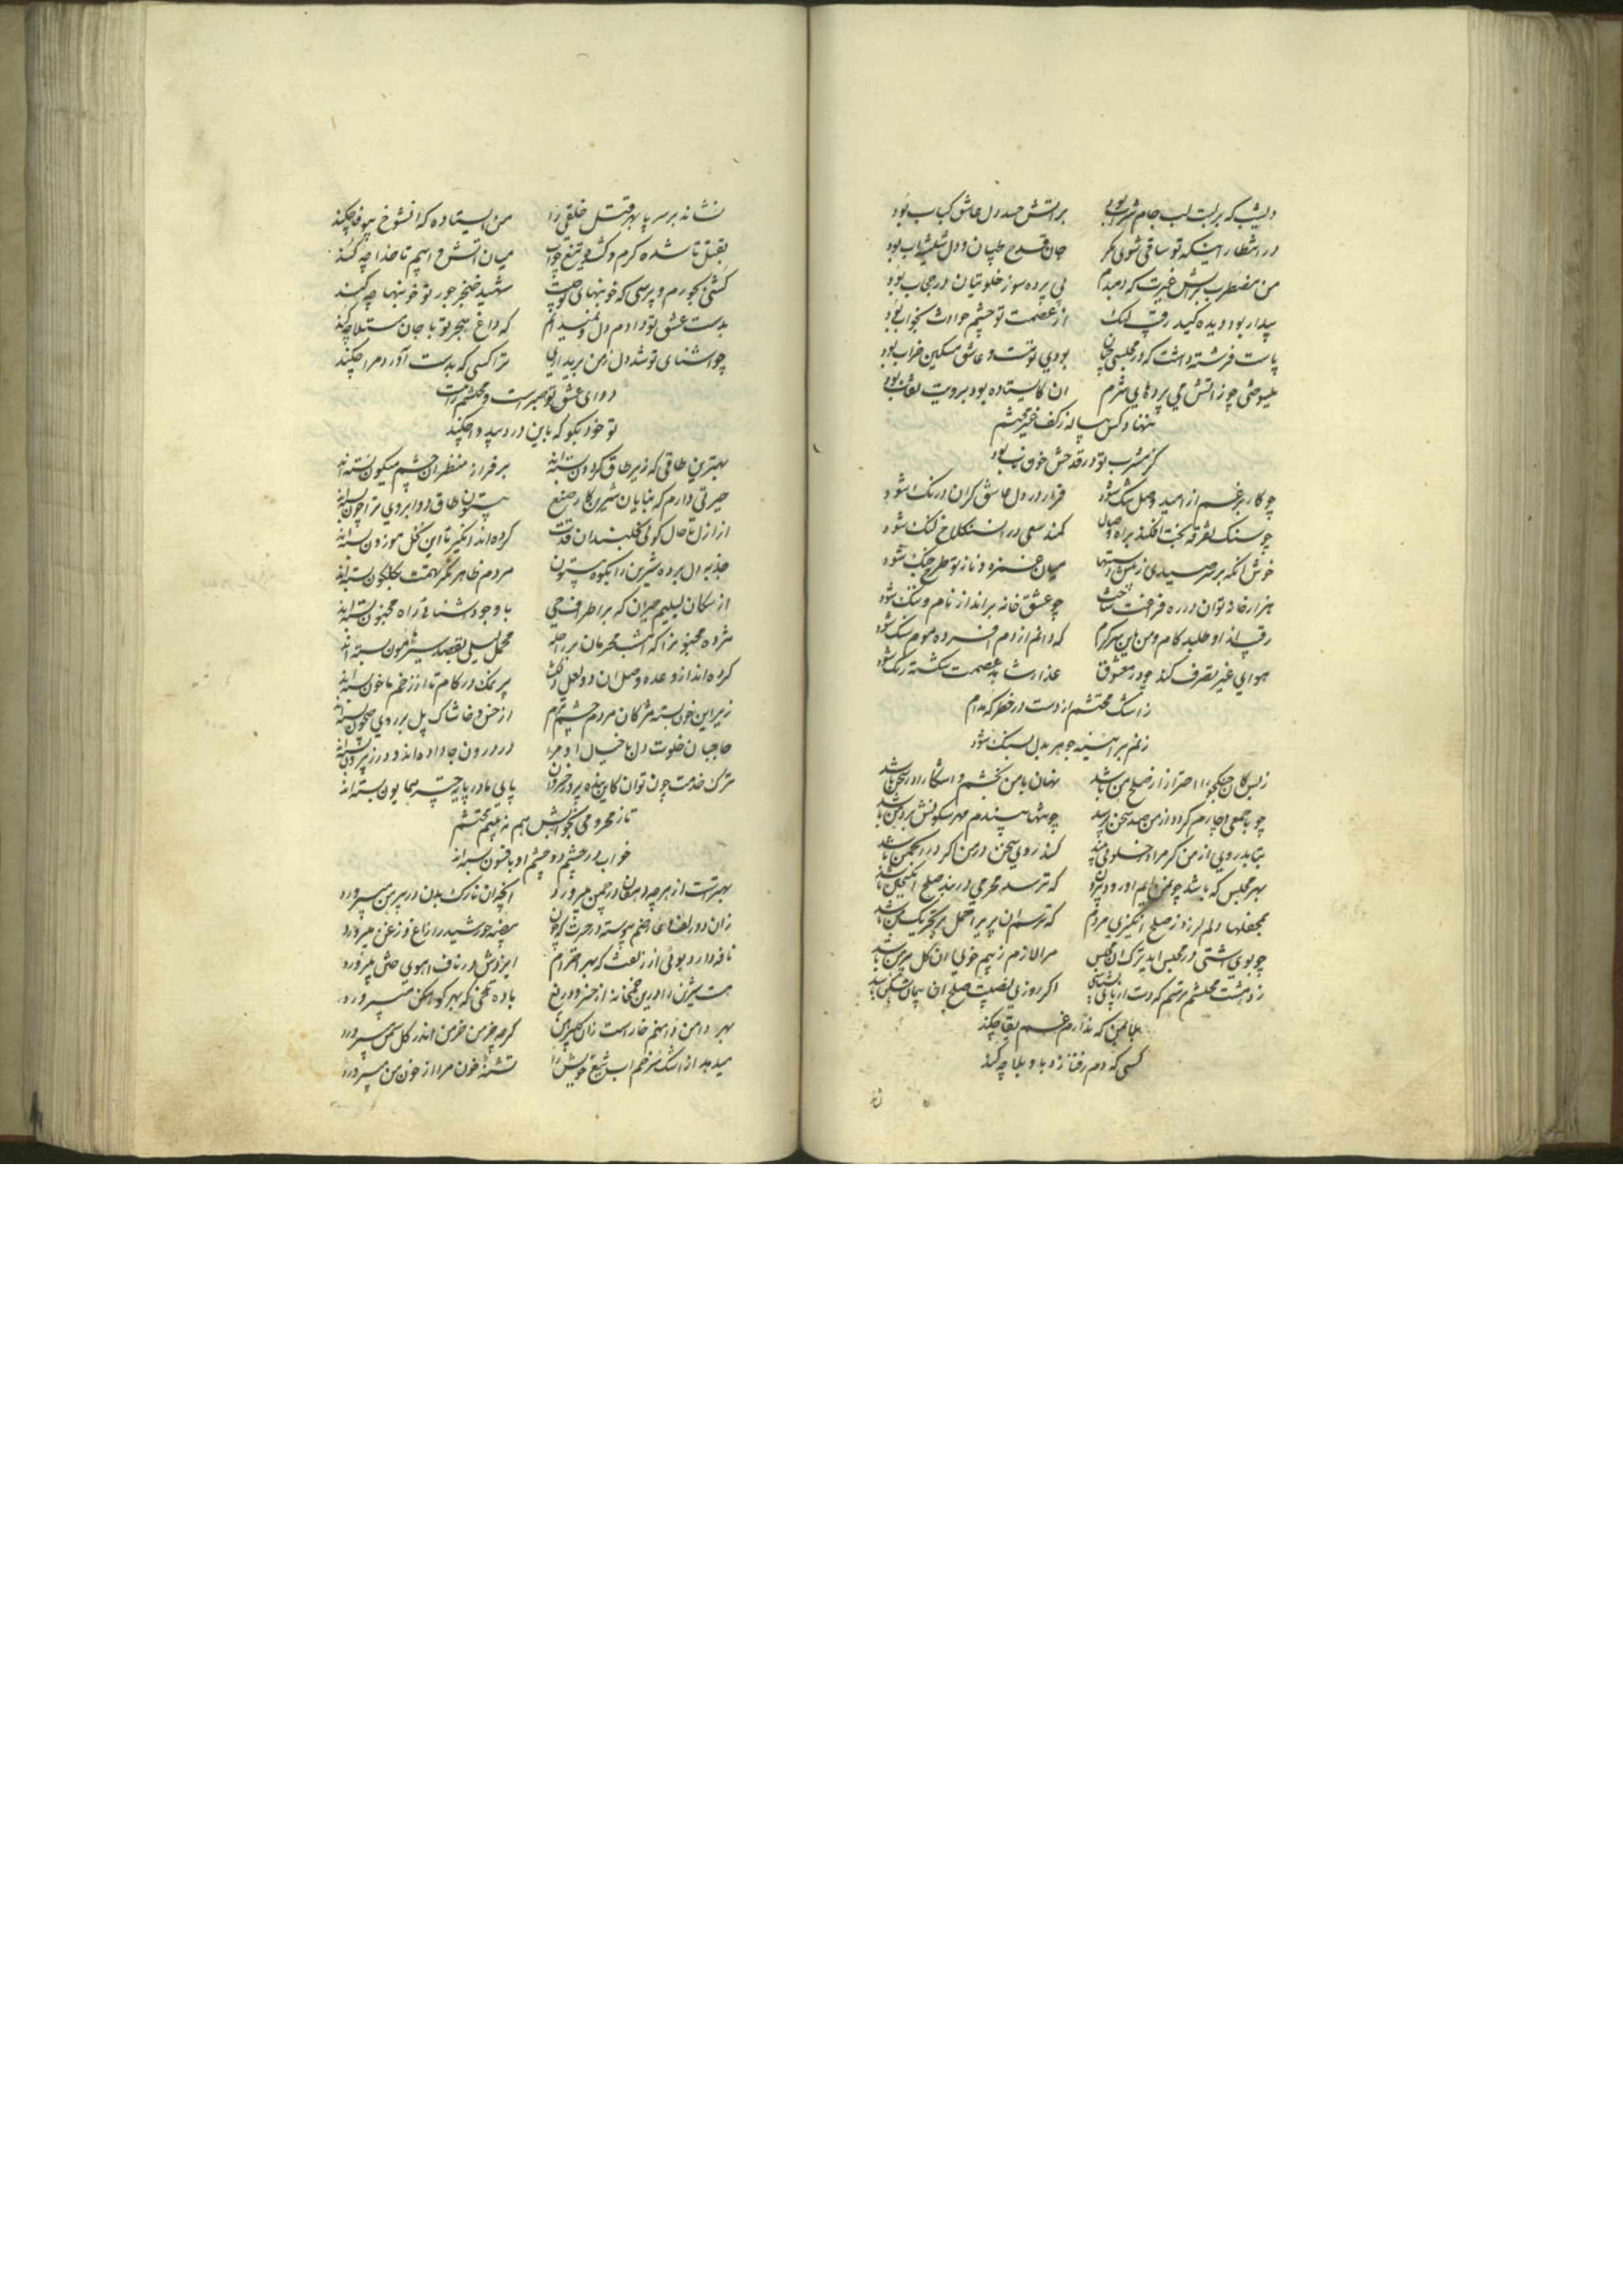 دیشب که بر لبت لب جام شراب بود بر آتش حسد دل عاشق کباب بود
در انتظار اینکه تو ساقی شوی مگر جان قدح طپان و دل شیشه آب بود
من مضطرب بر آتش غیرت که دمبدم بی پرده سوز خلوتیان در حجاب بود
بیدار بود دیده کید رقیب لیک از عصمت تو چشم حوادث بخواب بود
پاست فرشته داشت که در مجلسی چنان بودی تو مست و عاشق مسکین خراب بود
میسوختی چو ز آتش می پرده‌های شرم آن کایستاده بود برویت نقاب بود
ننهاد کس پیاله ز کف غیر محتشم
کز مشرب تو در قدحش خون ناب بود
چو کار بر غم از امید وصل تنک شود قرار در دل عاشق گران درنک شود
چو سنک تفرقه بخت افکند براه وصال کمند سعی در آن سنکلاخ لنک شود
خوش آنکه بر سر صیدی ز شست و میان غمزه و ناز تو طرح جنک شود
هزار خانه توان در ره فراغت ساخت چو عشق خانه برانداز نام و ننک شود
رقیب از او طلبد کام و من باین سر گرم که دایم از دم افسرده موم سنک شود
هوای غیر تصرف کند چو در معشوق عذار شاهد عصمت شکسته رنک شود
ز اشک محتشم از دست در خطر که مدام
ز نم بر آهنینه جوهر بدل بسنک شود
ز بس کان جنگجو را احتراز از صلح من باشد نهان با من بخشم و آشکارا در سخن باشد
چو با جمعی دچارم کرد از من صد سخن پرسد چو تنها بیندم مهر سکوتش بر دهن باشد
بتابد روی از من گر مرا در خلوتی بیند کند روی سخن در من اگر در انجمن باشد
بهر مجلس که باشد چون من آیم او رود بیرون که ترسد محرمی در بند صلح انگیختن باشد
بمحفلها دلم لرزد ز صلح انگیزی مردم که ترسم آن پری را حمل بر تحریک من باشد
چو بوی آشتی در مجلس آید ترک آن مجلس مرا لازم ز بیم خوی آن گل پیرهن باشد
ز دهشت محتشم ترسم که دست از پای نشناسی اگر روزی نصیبت صلح آن پیمان شکن باشد
بلا ببین که ندارم غم بقا چکند
کسی که دم زفنا زد باو بلا چه کند
نشانه بر سر پا بهر قتل خلقی را من ایستاده که آنشوخ بیوفا چکند
بقتل تا شده گرم و کشیده تیغ چو آب میان آتش و آبیم تا خدا چه کند
کشی بجورم و پرسی که خونبهای تو چیست شهید خنجر جور تو خونبها چه کند
بدست عشق تو دادم دل و نمیدانم که داغ هجر تو با جان مبتلا چه کند
چو آشنای تو شد دل ز من برید آری ترا کسی که بدست آورد مرا چکند
دوای عشق تو صبر است و محتشم را نیست
تو خود بگو که باین درد بیدوا چکند
بهترین طاقی که زیر طاق گردون بسته‌اند بر فراز منظر آن چشم میگون بسته‌اند
حیرتی دارم که بنایان شیرین کار صنع بیستون طاق دو ابروی ترا چون بسته‌اند
از ازل تا حال گوئی نخلبندان قدت کرده‌اند انگیز تا این نخل موزون بسته‌اند
جذبه دل برده شیرین را بکوه بیستون مردم ظاهر نگر تهمت بگلگون بسته‌اند
از سگان لیلیم حیران که بر اطراف حی با وجود آشنائی راه مجنون بسته‌اند
مژده مجنونرا که امشب محرمان بر راحله محمل لیلی بقصد سیر هامون بسته‌اند
کرده‌اند از وعده وصل آن دو لعل دلکشا پر نمک در کام تا از زخم ما خون بسته‌اند
زیر این خون بسته مژگان مردم چشم ترم از خس و خاشاک پل بر روی جیحون بسته‌اند
حاجبان خلوت دل با خیال او مرا در درون جا داده‌اند و در ز بیرون بسته‌اند
ترک خدمت چون توان کاین بنده پرور خسروان پای ما در پایه تخت همایون بسته‌اند
تا ز محرومی بخوابش هم نبینم محتشم
خواب در چشمم دو چشم او بافسون بسته‌اند
بهتر است از هر چه دهقان در چمن می‌پرورد آنچه آن نازک بدن در پیرهن میپرورد
زان دو زلف و عارضم پیوسته در حیرت که چون بیضه خورشید را زاغ و زغن میپرورد
نافه دارد بوئی از زلفت که بهر احترام ایزدش در ناف آهوی ختن میپرورد
هست شیرین را درین خمخانه از خسرو دریغ باده تلخی که بهر کوهکن میپرورد
بهر دامن دامنم خار است زان گلبن گرچه خرمن خرمن اندر گل سمن میپرورد
میدهد از اشک سرخم آب تیغ خویش را تشنهٔ خون مرا از خون من میپرورد